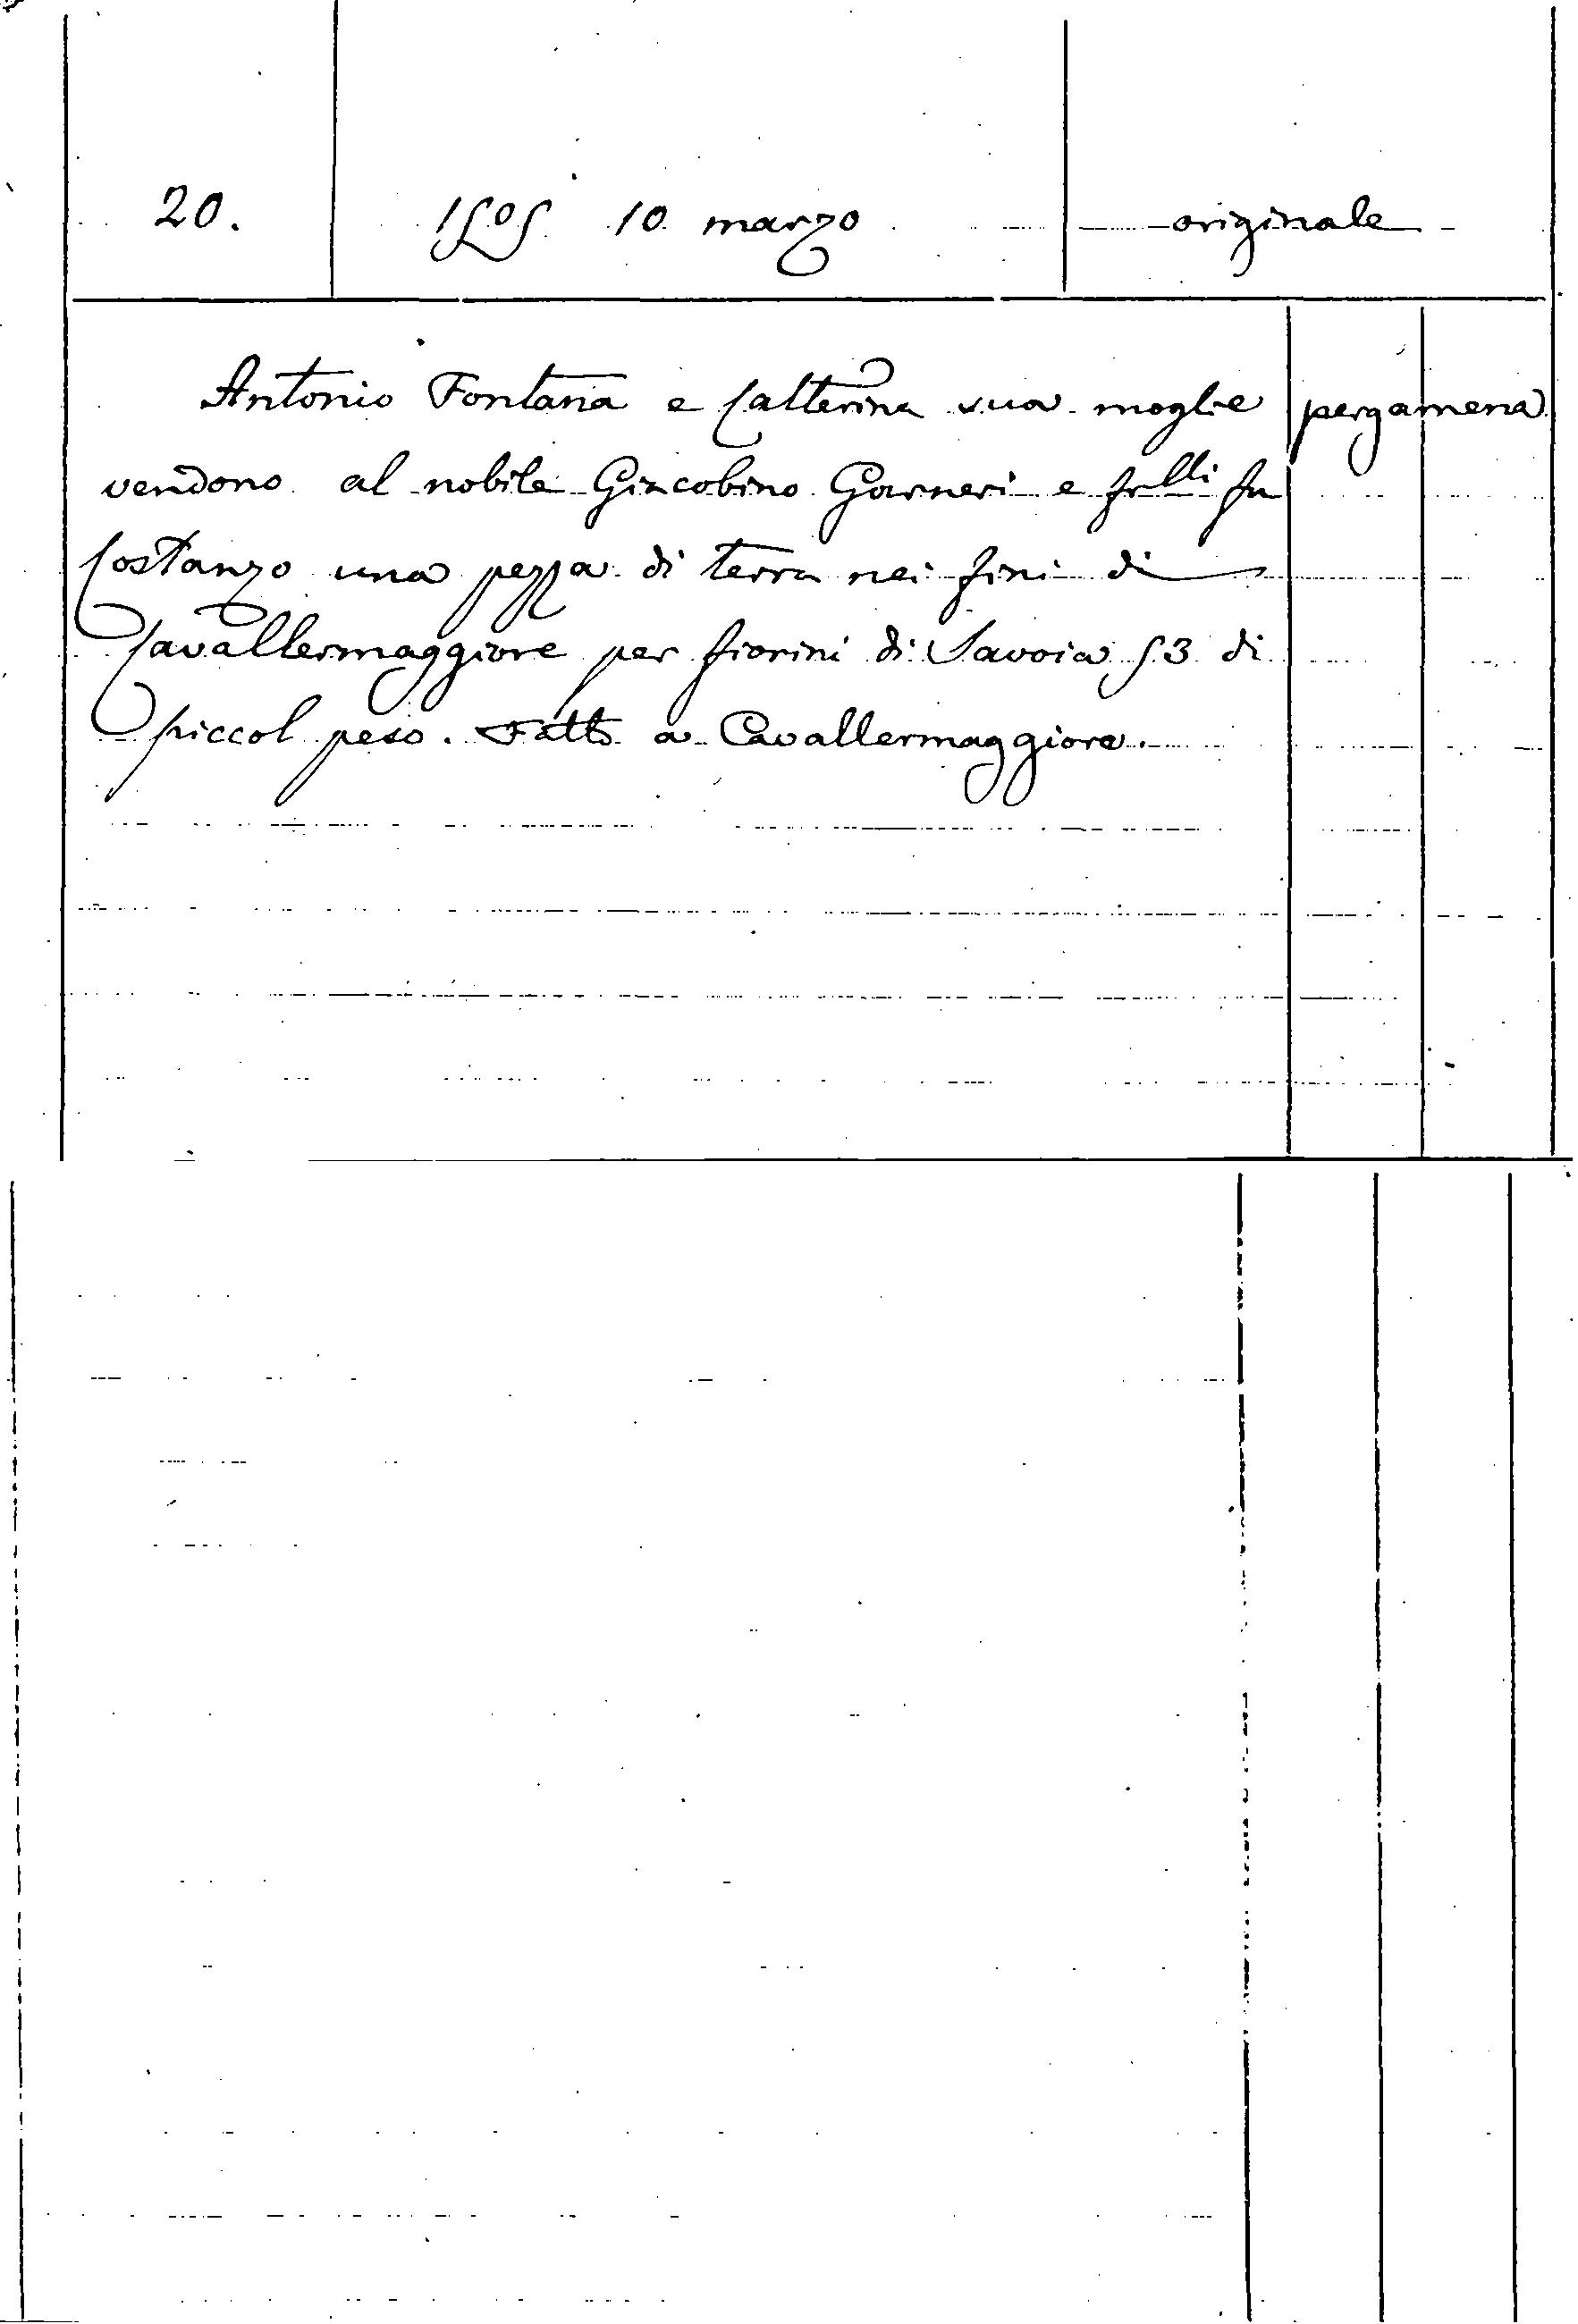 20. 1505 10 marzo originale
Antonio Fontana e Catterina sua moglie pergamena
vendono al nobile Giacobino Garneri e frlli fu
Costanzo una pezza di terra nei fini di
Cavallermaggiore per fiorini di Savoia 53 di
piccol peso. Fatto a Cavallermaggiore.